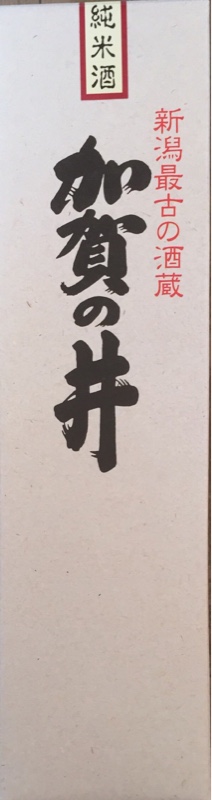 純米酒
新潟最古の酒蔵
加賀の井